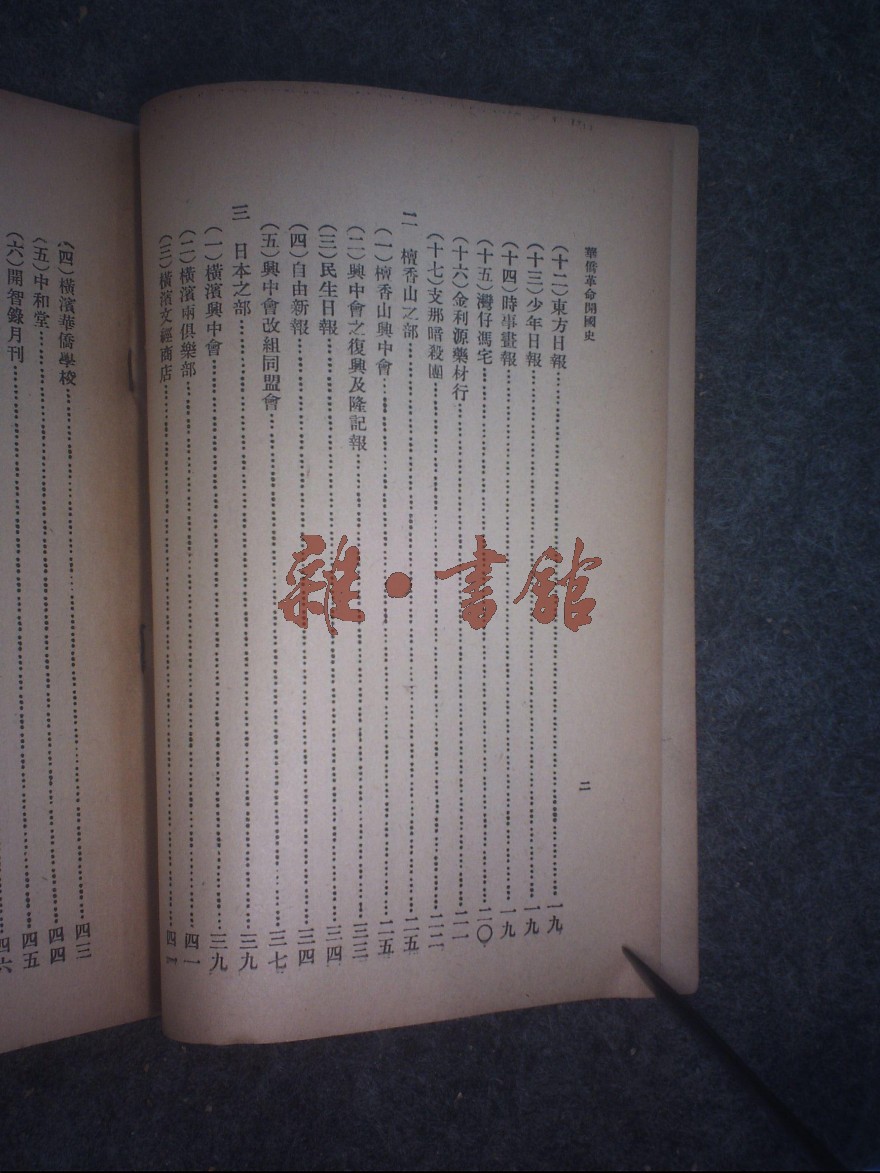 華僑革命開國史
二
(十二)東方日報……一九
(十三)少年日報……一九
(十四)時事畫報……一九
(十五)灣仔馮宅……二〇
(十六)金利源藥材行……二一
(十七)支那暗殺團……二二
二 檀香山之部……二五
(一)檀香山興中會……二五
(二)興中會之復興及隆記報……三三
(三)民生日報……三四
(四)自由新報……三四
(五)興中會改組同盟會……三七
三 日本之部……三九
(一)橫濱興中會……三九
(二)橫濱兩俱樂部……四一
(三)橫濱文經商店……
(四)橫濱華僑學校……四三
(五)中和堂……四四
(六)開智錄月刊……四五
四六
雜·書館